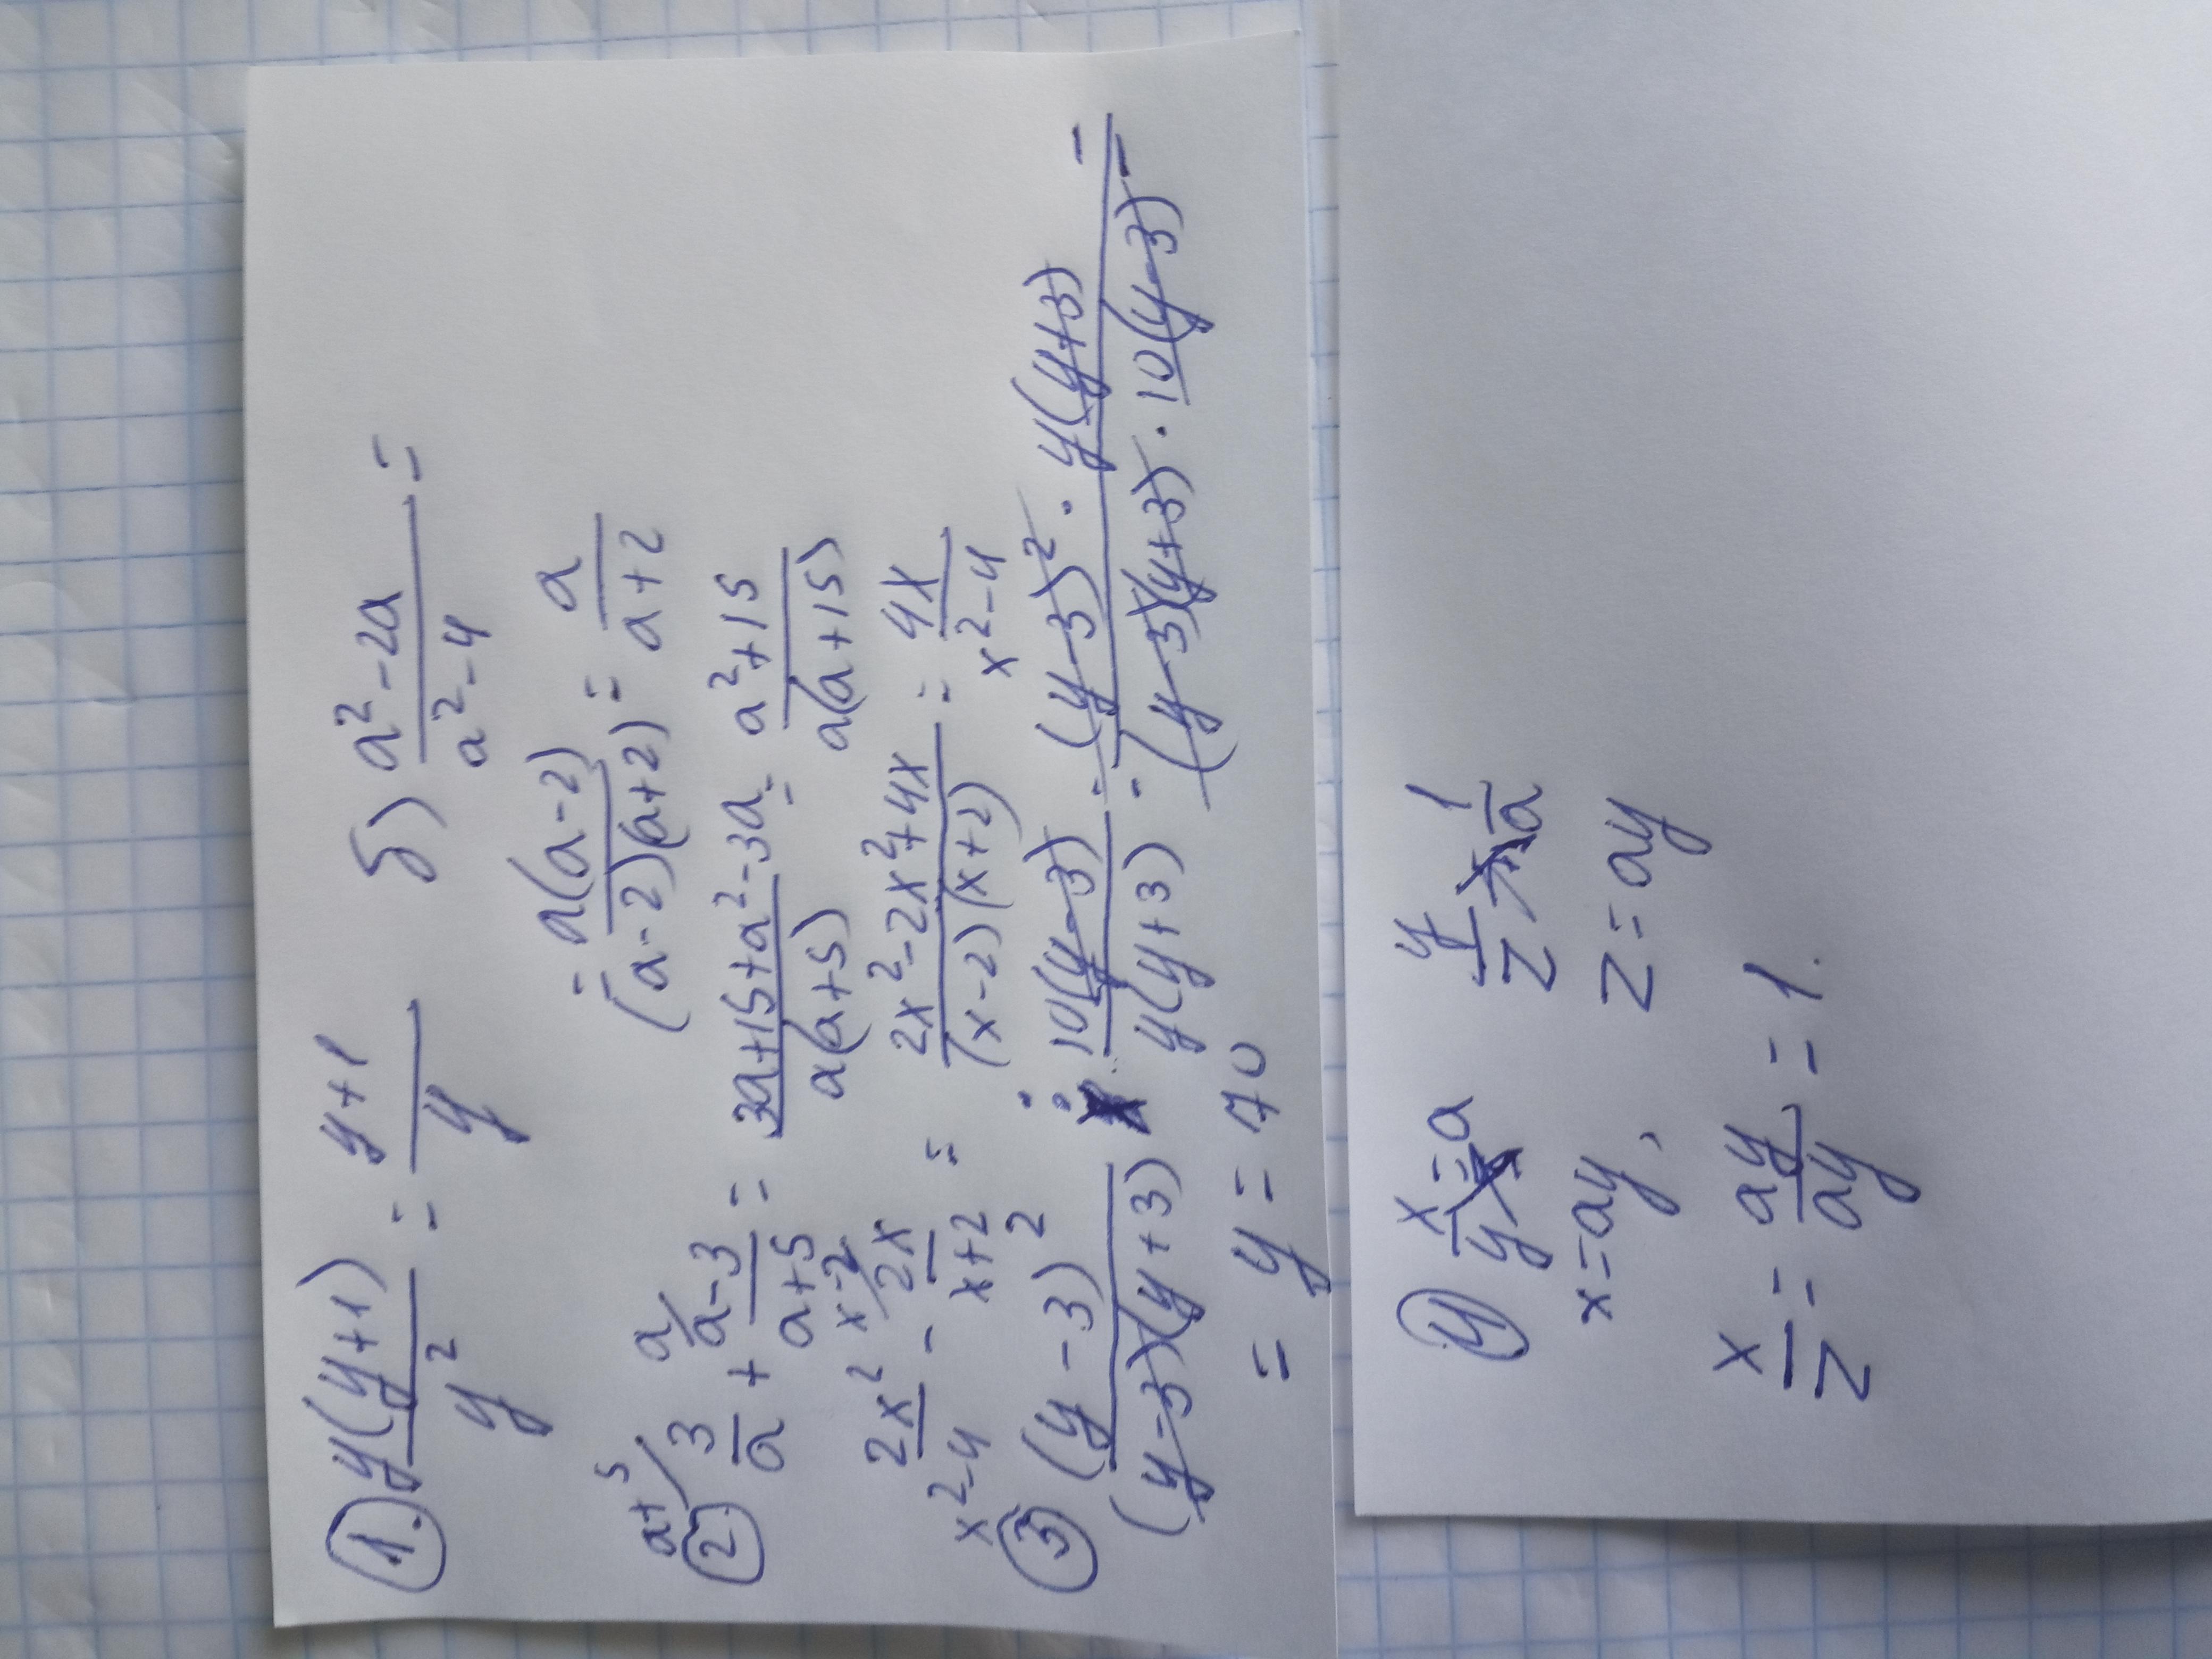 1. y(y+1)/y² = y+1/y б) a²-2a/a²-4 =
= a(a-2)/(a-2)(a+2) = a/a+2
2. a+5/ 3/a + a/ a-3/a+5 = 3a+15+a²-3a/a(a+5) = a²+15/a(a+15)
2x²/x²-4 - x-2/ 2x/x+2 = 2x²-2x²+4x/(x-2)(x+2) = 4x/x²-4
3 (y-3)²/(y-3)(y+3) : 10(y-3)/y(y+3) = (y-3)² · y(y+3)/(y-3)(y+3) · 10(y-3) =
= y = 10
4 x/y = a y/z = 1/a
x = ay, z = ay
x/z = ay/ay = 1.